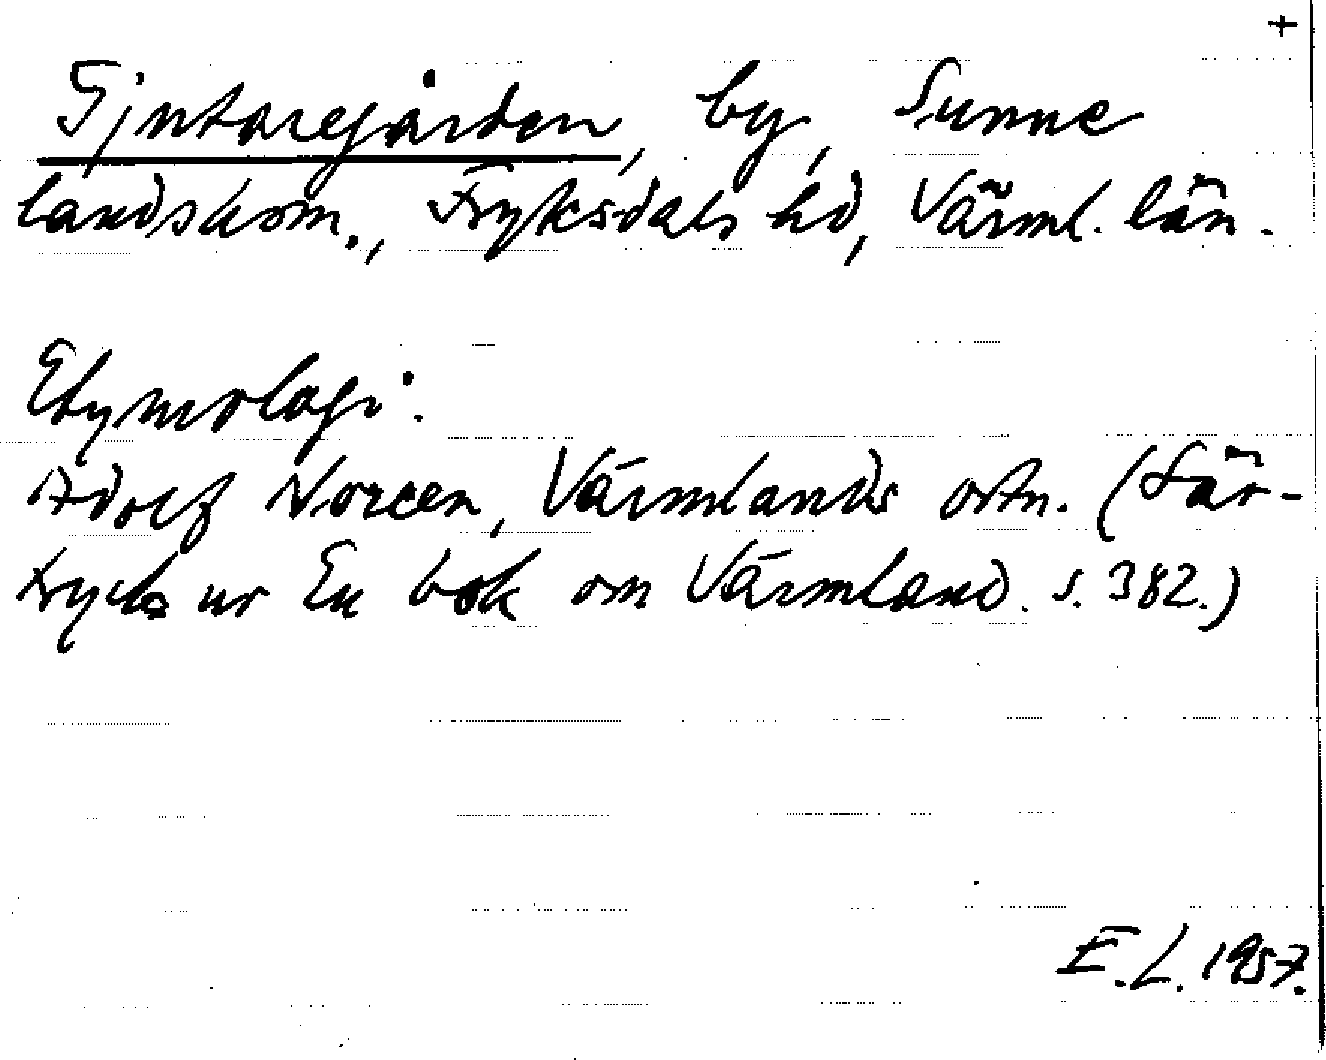 +
Gjutaregården, by, Sunne
landskom., Fryksdals hd, Värml. län.
Etymologi:
Adolf Noreen, Värmlands ortn. (Sär-
tryck ur En bok om Värmland. s. 382.)
E.L. 1957.